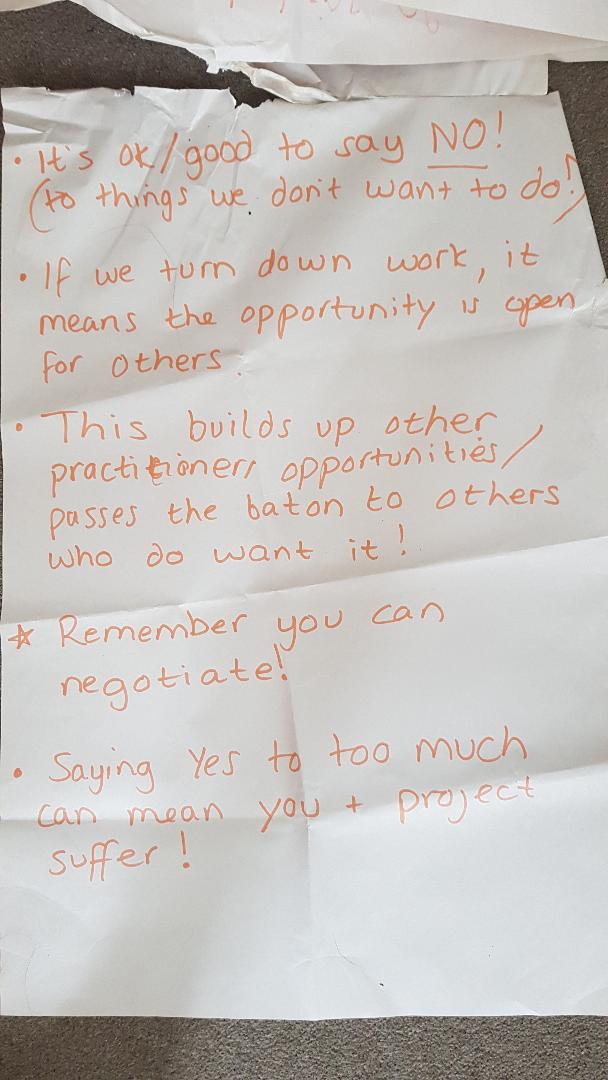 • It's ok/good to say NO!
(to things we don't want to do!)
• If we turn down work, it
means the opportunity is open
for others.
• This builds up other
practitioners opportunities/
passes the baton to others
who do want it!
☆ Remember you can
negotiate!
• Saying Yes to too much
can mean you + project
suffer!